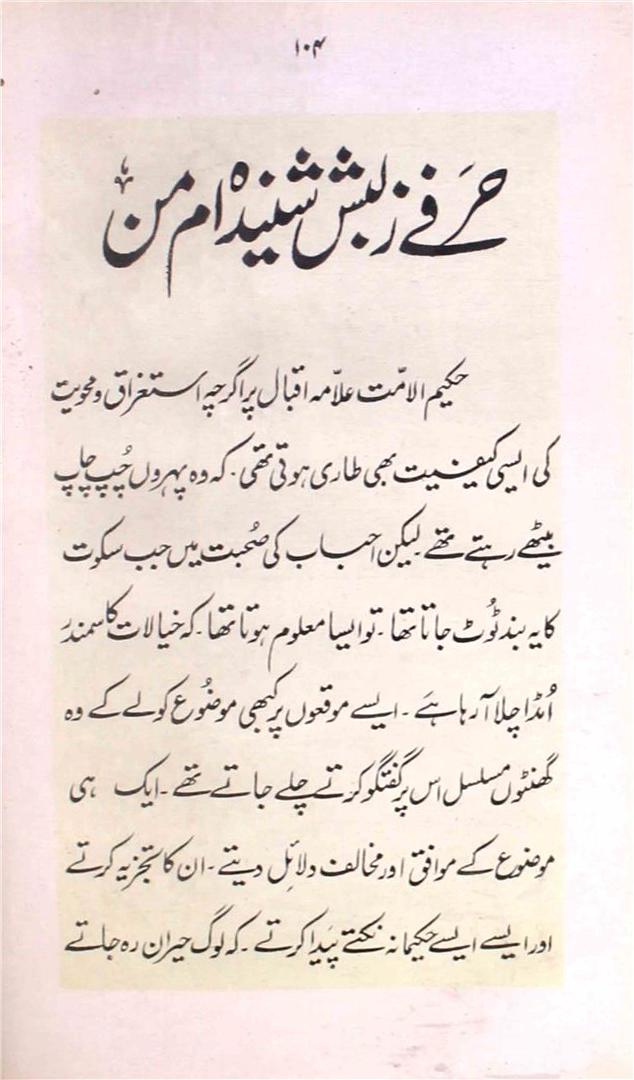 ۱۰۴
حرفے ز لبش شنیدہ ام من
حکیم الامّت علاّمہ اقبال پر اگرچہ استغراق و محویت
کی ایسی کیفیت بھی طاری ہوتی تھی۔ کہ وہ پہروں چُپ چاپ
بیٹھے رہتے تھے۔ لیکن احباب کی صُحبت میں جب سکوت
کا یہ بند ٹُوٹ جاتا تھا۔ تو ایسا معلوم ہوتا تھا۔ کہ خیالات کا سمندر
اُمڈا چلا آ رہا ہَے۔ ایسے موقعوں پر کبھی موضُوع کو لے کے وہ
گھنٹوں مسلسل اس پر گفتگو کرتے چلے جاتے تھے۔ ایک ہی
موضوع کے موافق اور مخالف دلائل دیتے۔ ان کا تجزیہ کرتے
اور ایسے ایسے حکیمانہ نکتے پَیدا کرتے۔ کہ لوگ حیران رہ جاتے